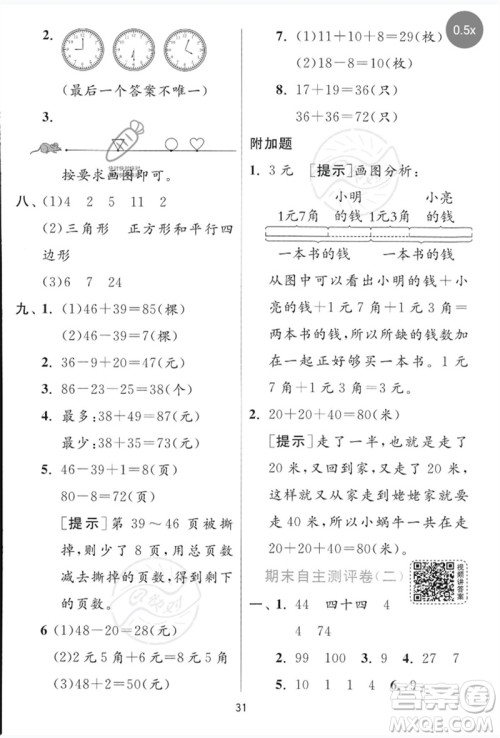 2.
(最后一个答案不唯一)
3.
按要求画图即可。
八、(1)4 2 5 11 2
(2)三角形 正方形和平行四
边形
(3)6 7 24
九、1. (1)46+39=85(棵)
(2)46-39=7(棵)
2. 36-9+20=47(元)
3. 86-23-25=38(个)
4. 最多:38+49=87(元)
最少:38-33=5(元)
5. 46-39+1=8(页)
80-8=72(页)
[提示]第39~46页被撕
掉,则第39页也被撕
掉,最后再用总页数减去
撕掉的页数,就是剩下的
页数。
6 (1)48-20=28(元)
(3)48+24=72(元)
7. (1)21+8=29(枚)
(2)18-8=10(枚)
8. 17+19=36(只)
36+36=72(只)
附加题
1. 3元 [提示]画图分析:
小明 小亮
1元7角 的钱 1元3角 的钱
一本书的钱 一本书的钱
从图中可以看出小明的
钱+1元7角+小亮的
钱+1元3角=
两本书的钱,所以所缺的钱数合在
一起正好够买一本书。1元
7角+1元3角=3元。
2. 20+20+40=80(米)
[提示]走了一半,也就是走了
20米,又回家,又走了20米,
这样就又从家走到姥姥家走了
40米,所以小蜗牛一共走了
20+20+40=80(米)。
期末自主测评卷(二)
视频讲答案
一、1. 44 四十四 4
4 74
2. 99 100 3. 49 4. 7
5. 10 1 1 4 6.
31
0.5x